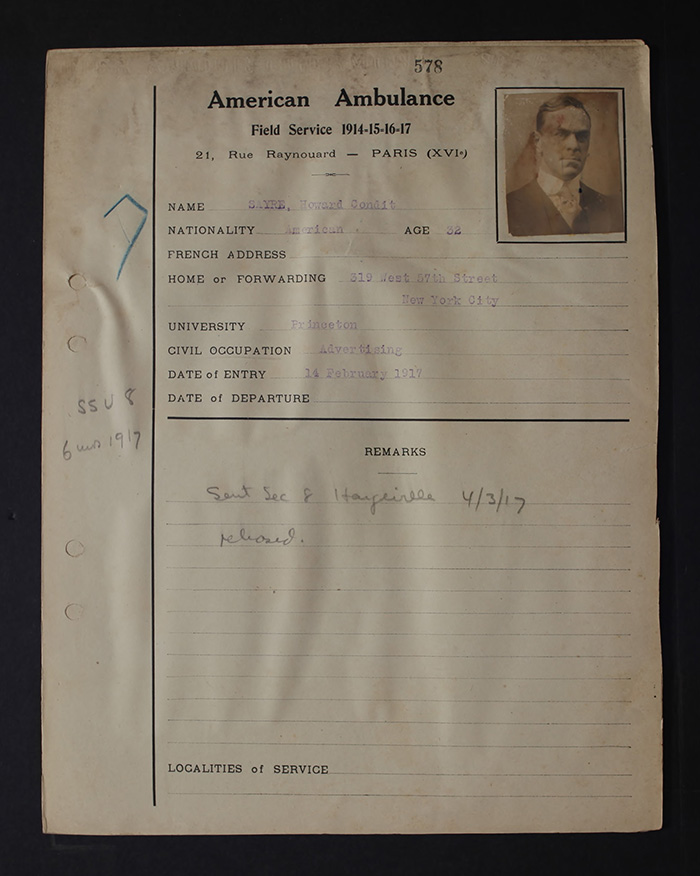 578
American Ambulance
Field Service 1914-15-16-17
21, Rue Raynouard — PARIS (XVIe)
NAME SAYRE, Howard Condit
NATIONALITY American . AGE 32
FRENCH ADDRESS
HOME or FORWARDING 319 West 57th Street
New York City
UNIVERSITY Princeton
CIVIL OCCUPATION Advertising
DATE of ENTRY 14 February 1917
DATE of DEPARTURE
SSU 8
6 mos 1917
REMARKS
Sent Sec 8 4/3/17
released.
LOCALITIES of SERVICE